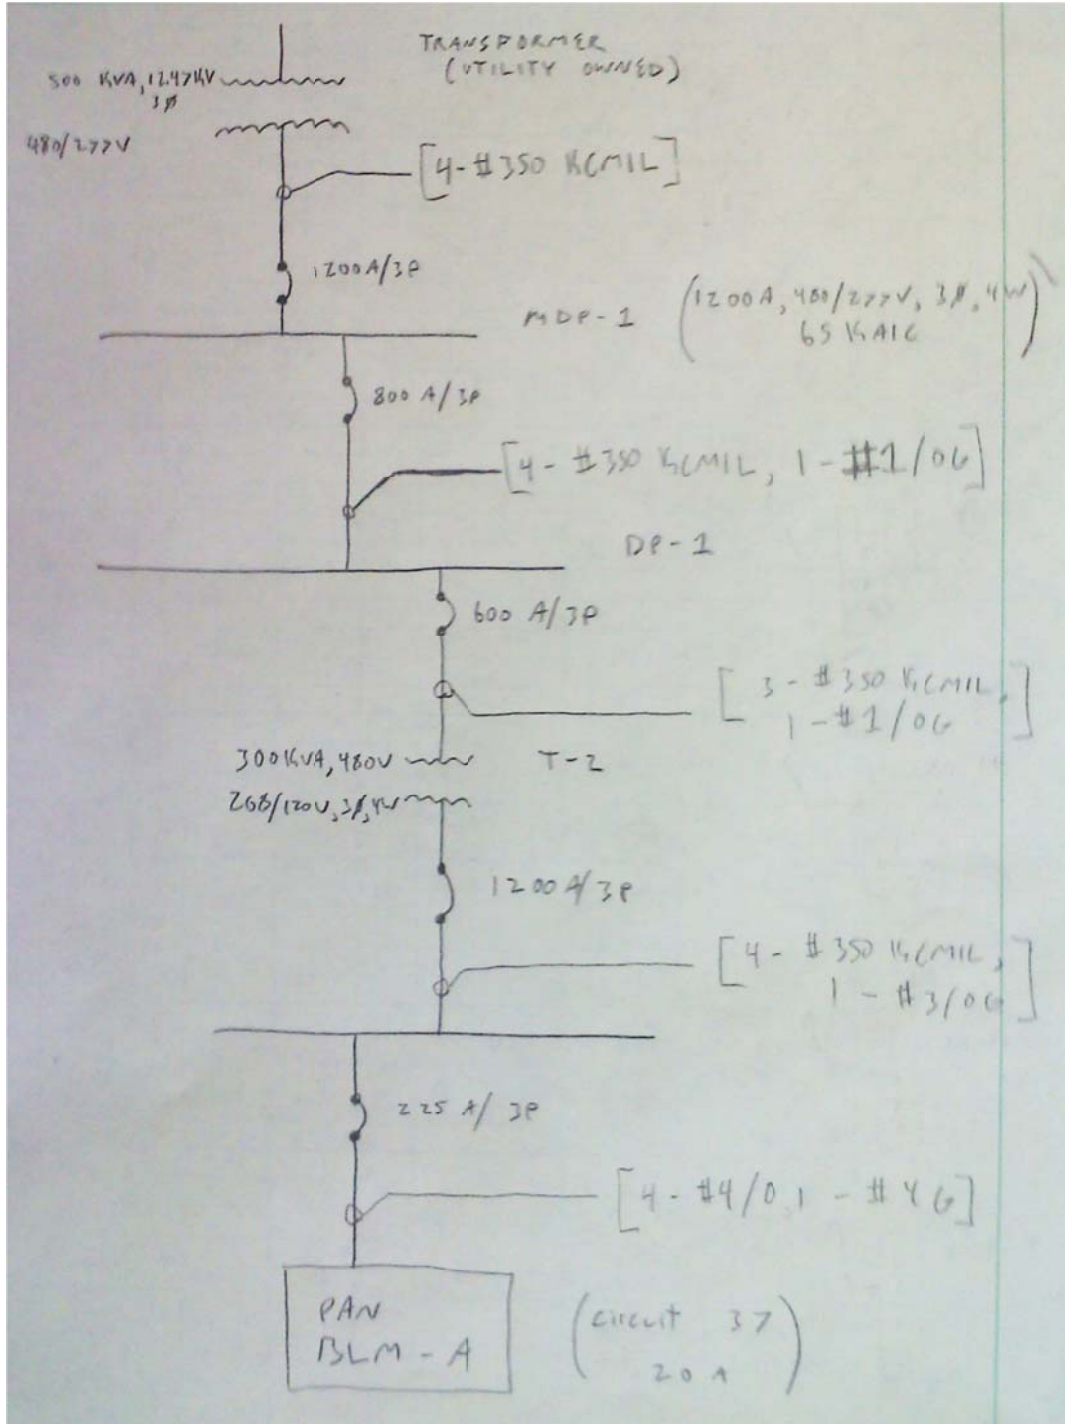 TRANSFORMER
(UTILITY OWNED)
500 KVA, 12.47KV
3Ø
480/277V
[4-#350 KCMIL]
1200A/3P
MDP-1
(1200A, 480/277V, 3Ø, 4W)
65 KAIC
800 A/3P
[4-#350 KCMIL, 1-#1/0G]
DP-1
600 A/3P
[3-#350 KCMIL,
1-#1/0G]
300KVA, 480V
T-2
208/120V, 3Ø, 4W
1200A/3P
[4-#350 KCMIL,
1-#3/0G]
225 A/3P
[4-#4/0, 1-#4G]
PAN
BLM-A
(circuit 37
20A)